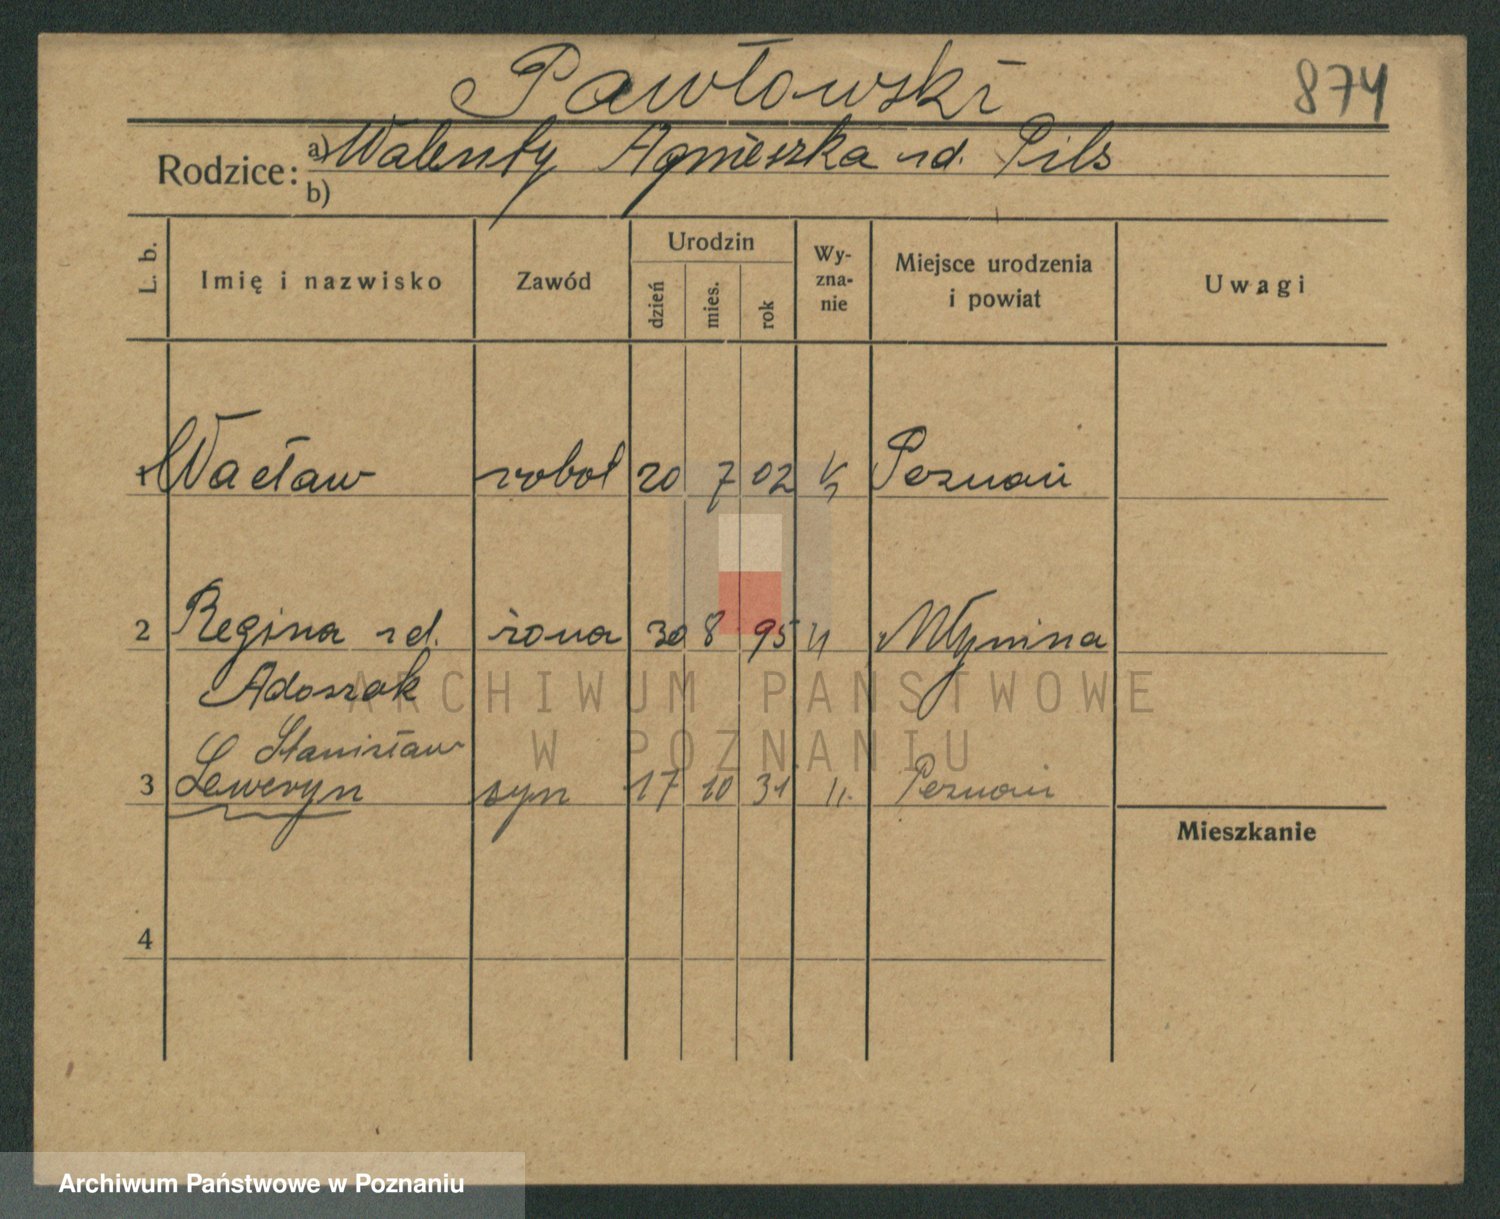 Pawłowski
874
Rodzice: a) Walenty Agnieszka rd. Pils
b)
L. b. Imię i nazwisko Zawód Urodzin dzień mies. rok Wy-zna-nie Miejsce urodzenia i powiat Uwagi
1 Wacław robot 20 7 02 Poznań
2 Regina rd. żona 30 8 95 " Młynina
Adoszak
Stanisław
3 Seweryn syn 17 10 31 " Poznań
Mieszkanie
4
ARCHIWUM PAŃSTWOWE
W POZNANIU
Archiwum Państwowe w Poznaniu